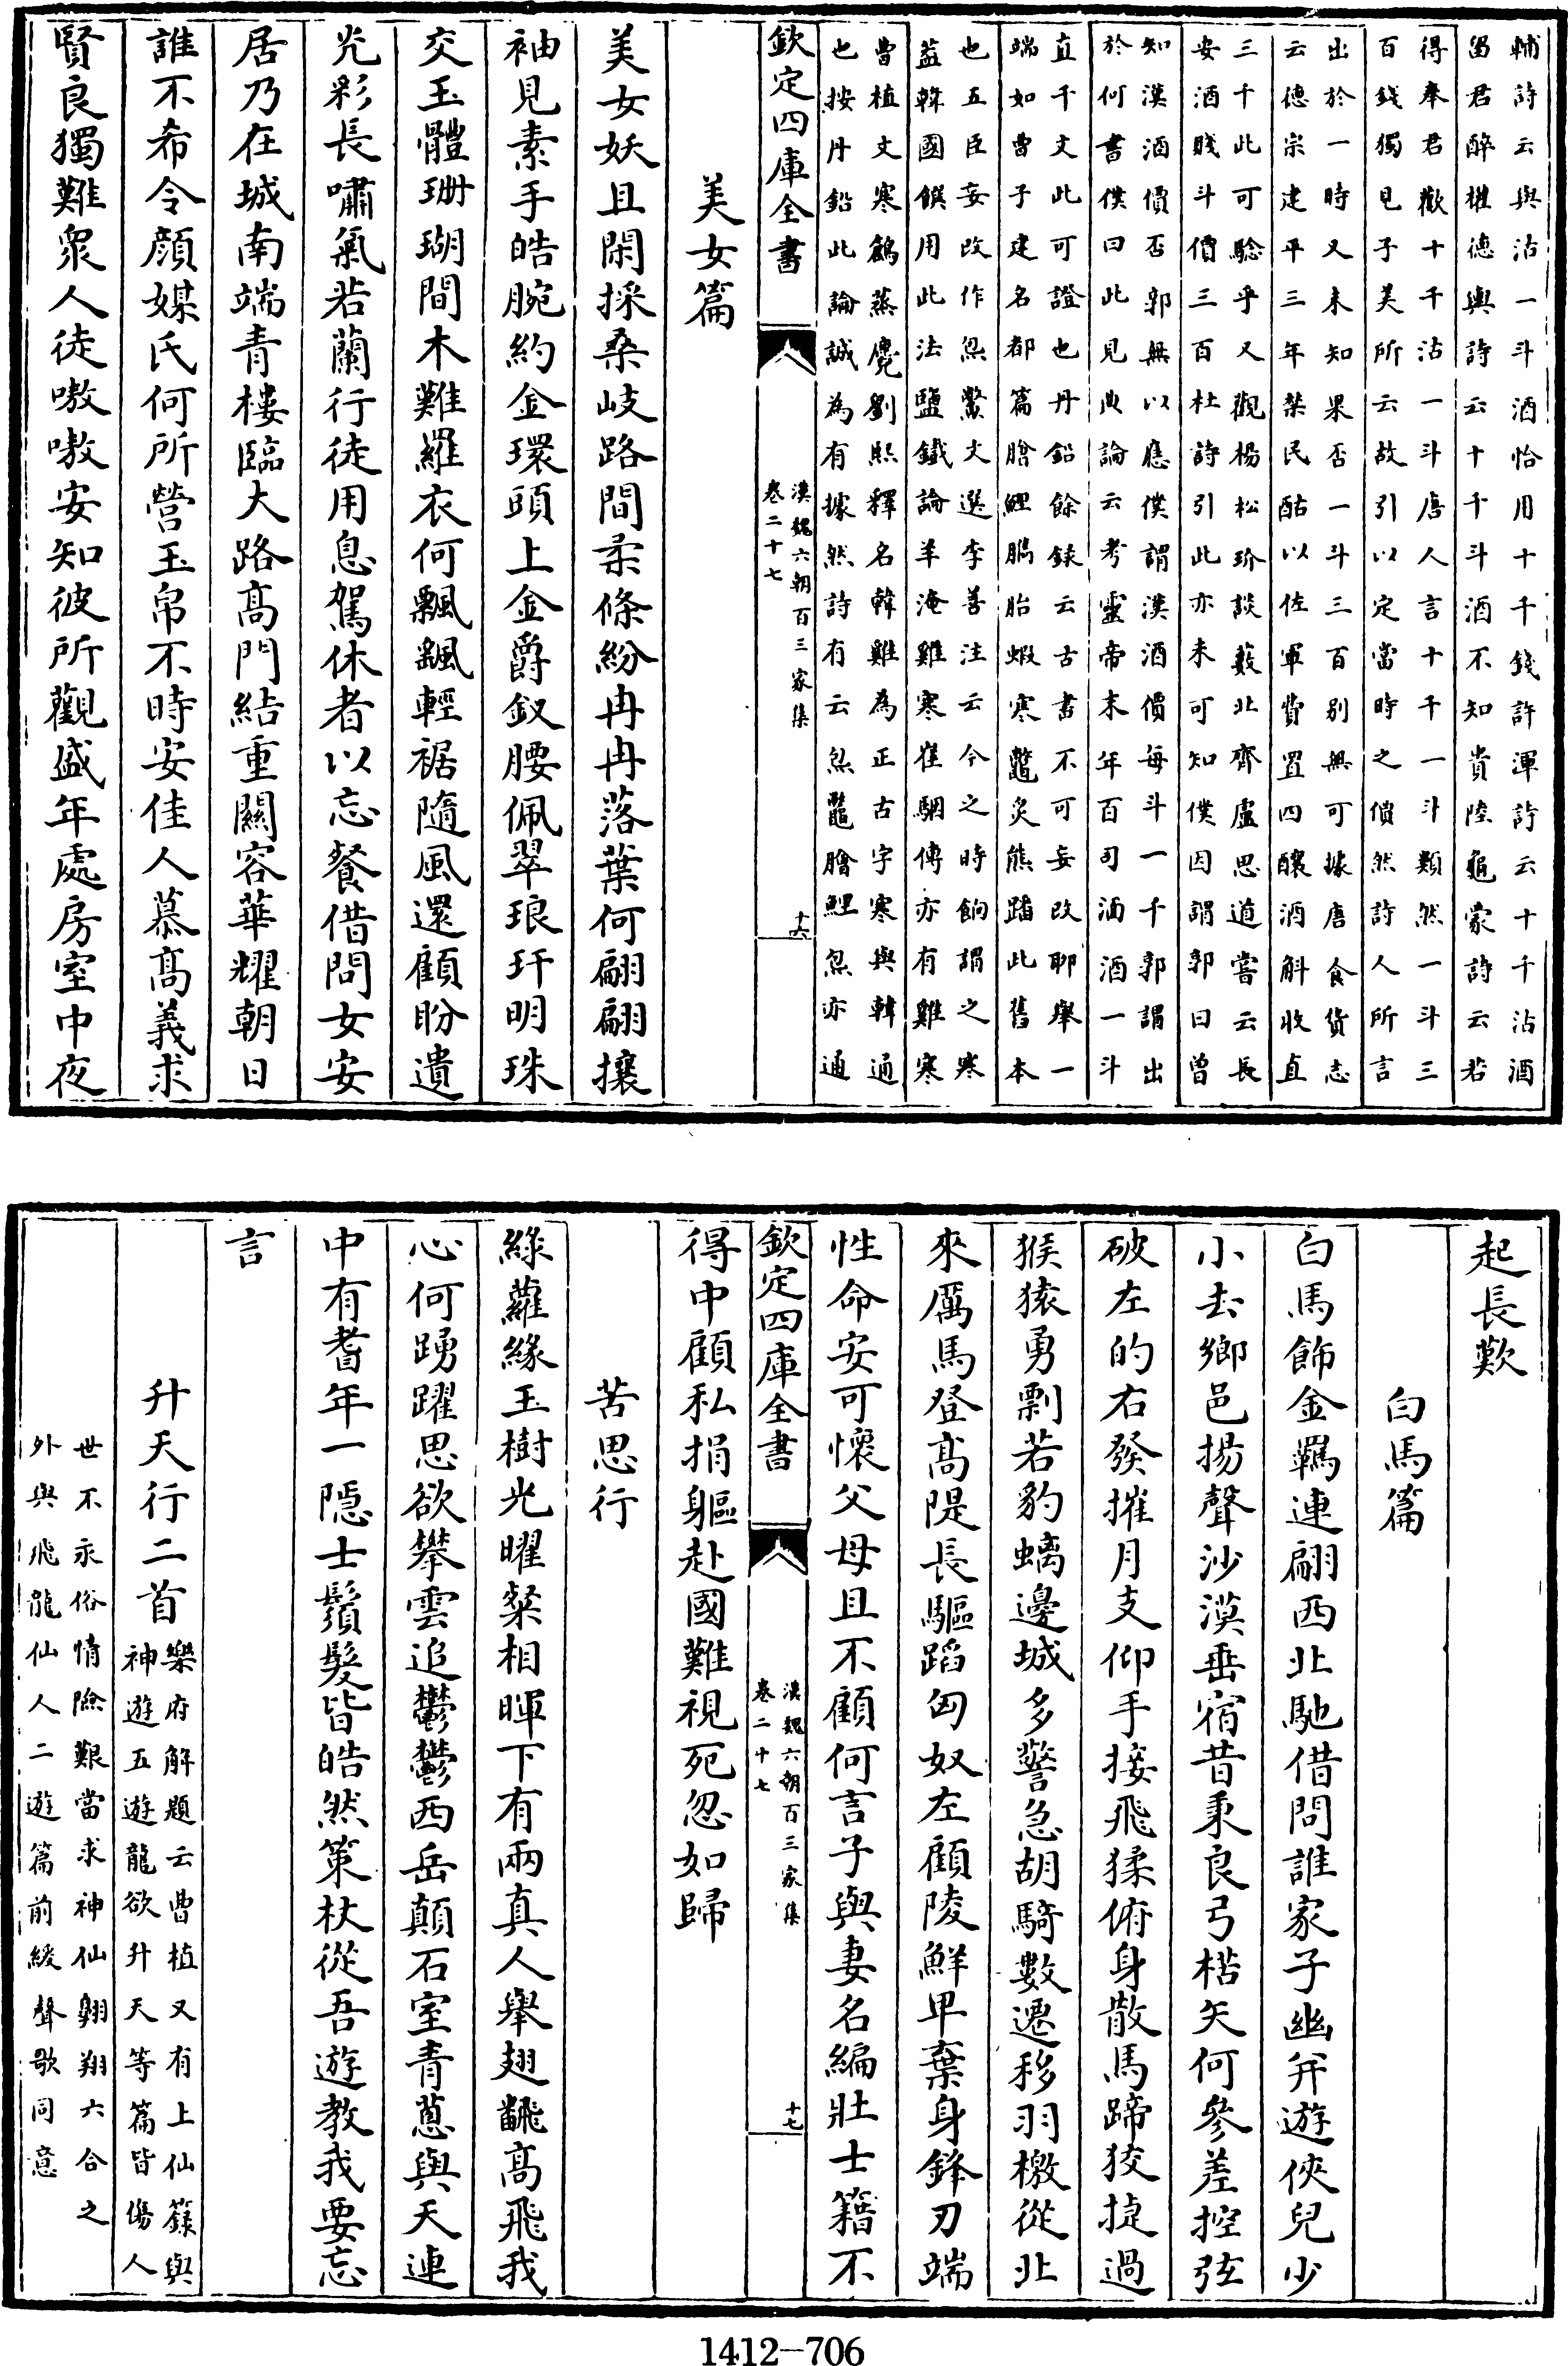 輔詩云與沽一斗酒恰用十千錢許渾詩云十千沽酒
畱君醉權德輿詩云十千斗酒不知貴陸龜蒙詩云若
得奉君歡十千沽一斗唐人言十千一斗類然一斗三
百錢獨見子美所云故引以定當時之價然詩人所言
出於一時又未知果否一斗三百別無可據唐食貨志
云德宗建平三年禁民酤以佐軍費置四釀酒斛收直
三千此可驗乎又觀楊松玠談藪北齊盧思道嘗云長
安酒賤斗價三百杜詩引此亦未可知僕因謂郭曰曾
知漢酒價否郭無以應僕謂漢酒價每斗一千郭謂出
於何書僕曰此見典論云考靈帝末年百司湎酒一斗
直千文此可證也丹鉛餘録云古書不可妄改聊舉一
端如曹子建名都篇膾鯉臇胎蝦寒鼈炙熊蹯此舊本
也五臣妄改作炰鱉文選李善注云今之時餉謂之寒
葢韓國饌用此法鹽鐵論羊淹雞寒崔駰傳亦有雞寒
曹植文寒鶬蒸麑劉熙釋名韓雞為正古字寒與韓通
也按丹鉛此論誠為有據然詩有云炰鼈膾鯉炰亦通
欽定四庫全書
漢魏六朝百三家集
卷二十七
十六
美女篇
美女妖且閑採桑岐路間柔條紛冉冉落葉何翩翩攘
袖見素手皓腕約金環頭上金爵釵腰佩翠琅玕明珠
交玉體珊瑚間木難羅衣何飄飄輕裾隨風還顧盼遺
光彩長嘯氣若蘭行徒用息駕休者以忘餐借問女安
居乃在城南端青樓臨大路高門結重關容華耀朝日
誰不希令顔媒氏何所營玉帛不時安佳人慕高義求
賢良獨難衆人徒嗷嗷安知彼所觀盛年處房室中夜
起長歎
白馬篇
白馬飾金羈連翩西北馳借問誰家子幽并遊俠兒少
小去鄉邑揚聲沙漠垂宿昔秉良弓楛矢何參差控弦
破左的右發摧月支仰手接飛猱俯身散馬蹄狡捷過
猴猿勇剽若豹螭邊城多警急胡騎數遷移羽檄從北
來厲馬登高隄長驅蹈匈奴左顧陵鮮卑棄身鋒刃端
性命安可懷父母且不顧何言子與妻名編壯士籍不
欽定四庫全書
漢魏六朝百三家集
卷二十七
十七
得中顧私捐軀赴國難視死忽如歸
苦思行
綠蘿緣玉樹光曜粲相暉下有兩真人舉翅翻高飛我
心何踴躍思欲攀雲追鬱鬱西岳顛石室青蔥與天連
中有耆年一隱士鬚髮皆皓然策杖從吾遊教我要忘
言
升天行二首
樂府解題云曹植又有上仙籙與
神遊五遊龍欲升天等篇皆傷人
世不永俗情險艱當求神仙翱翔六合之
外與飛龍仙人二遊篇前緩聲歌同意
1412—706